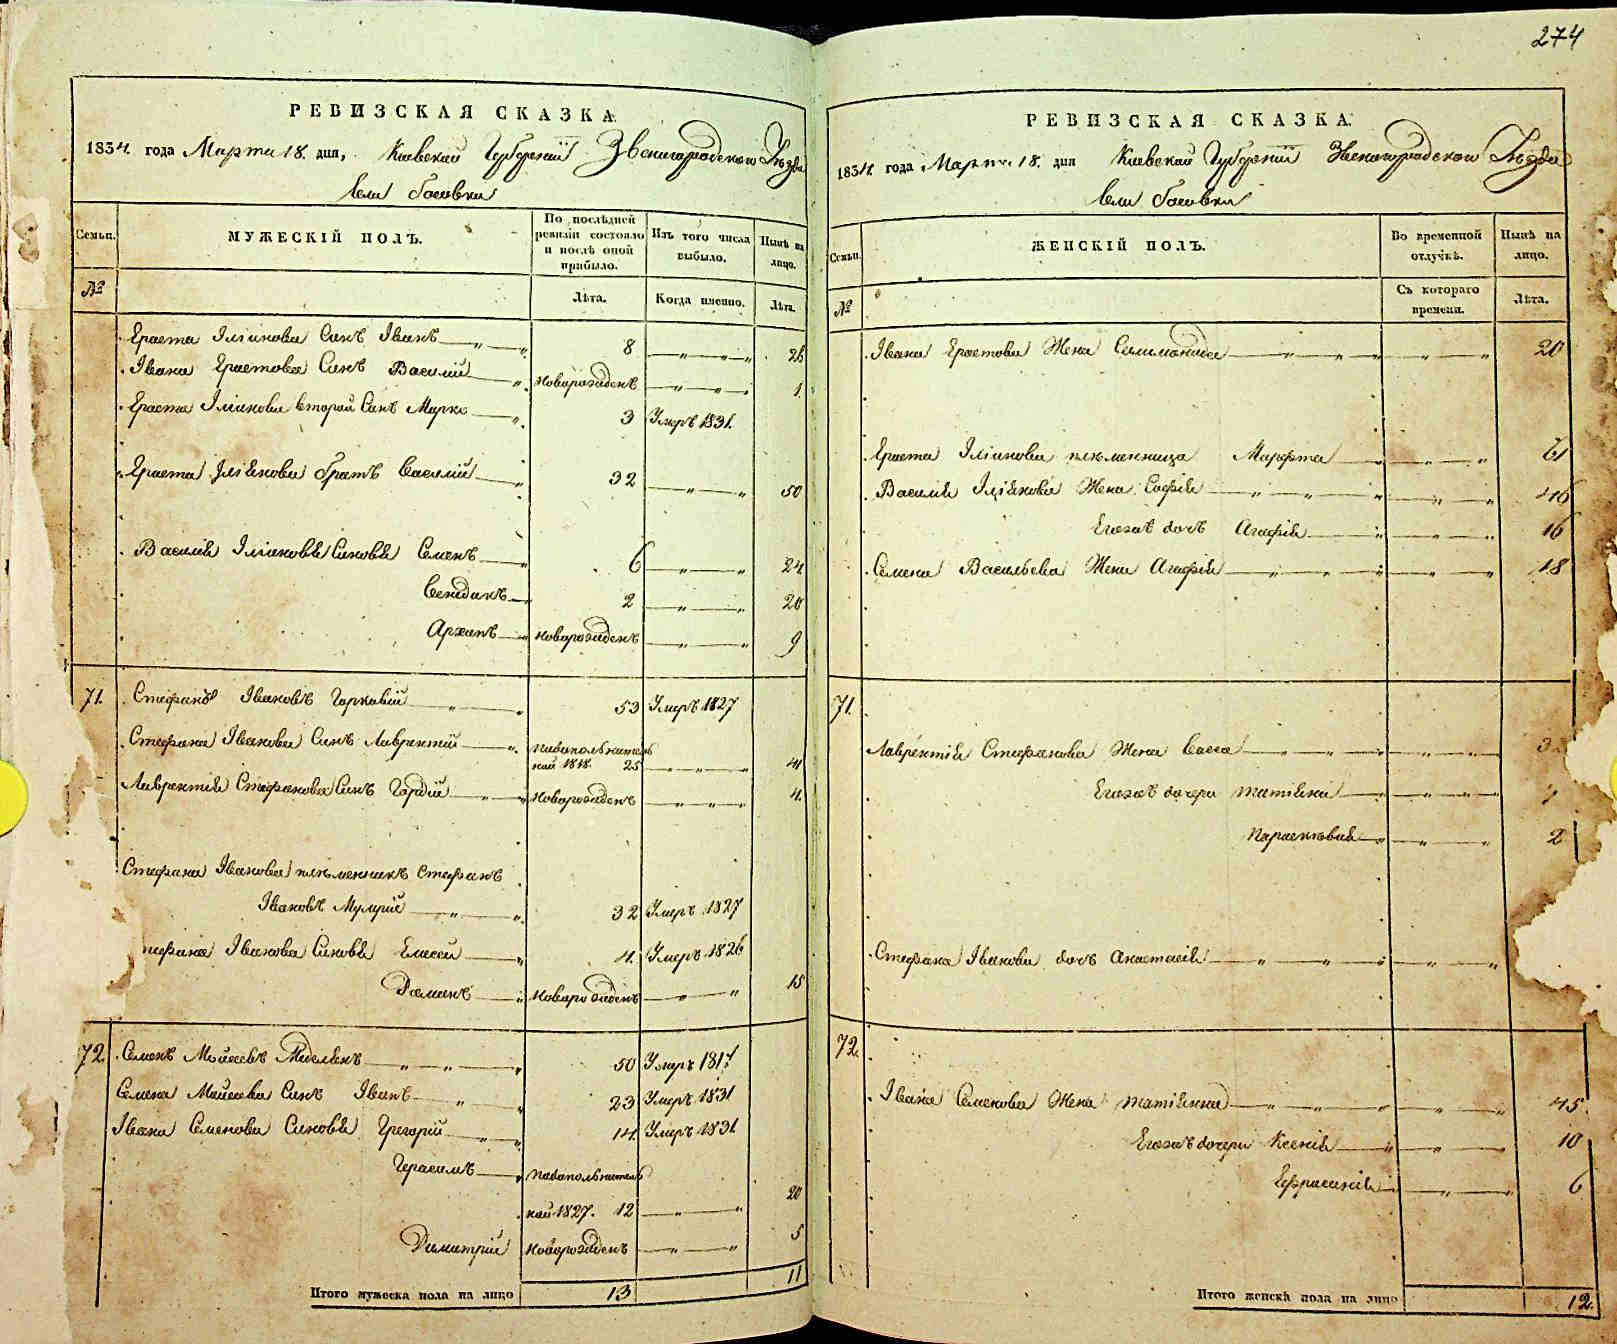 274
РЕВИЗСКАЯ СКАЗКА
1834. года Марта 18. дня, Киевской Губернии Звенигородского Уѣзда
Сели Гасовки
Семьи. МУЖЕСКІЙ ПОЛЪ. По послѣдней ревизіи состояло и послѣ оной прибыло. Изъ того числа выбыло. Нынѣ на лицо.
№ Лѣта. Когда именно. Лѣта.
Ераста Іліинова Синъ Іванъ 8 26
Івана Ерастова Синъ Василій новорожденъ 1
Ераста Іліинова второй Синъ Марко 3 Умеръ 1831.
Ераста Іліинова братъ Василій 32 50
Василія Іліиновы Синовья Семенъ 6 24
2 20
Архипъ новорожденъ 9
71. Стефанъ Івановъ Горкавій 53 Умеръ 1827
Стефана Іванова Синъ Лаврентій
1818. 25 41
Лаврентія Стефанова Синъ Гордій новорожденъ 4.
Стефана Іванова племенникъ Стефанъ
Івановъ 32 Умеръ 1827
Іванова Синовья Елисей 4. Умеръ 1826
новорожденъ 15
72. Семенъ Мойсеевъ 50 Умеръ 181
Семена Мойсеева Синъ Іванъ 23 Умеръ 1831
Івана Семенова Синовья Григорій 14. Умеръ 1831.
Герасимъ
1827. 12 20
Димитрій новорожденъ 5
Итого мужеска пола на лицо 13 11
РЕВИЗСКАЯ СКАЗКА.
1834. года Марта 18. дня Киевской Губерніи Звенигородского Уѣзда
Сели Гасовки
Семьи. ЖЕНСКІЙ ПОЛЪ. Во временной отлучкѣ. Нынѣ на лицо.
№ Съ котораго времени. Лѣта.
Івана Ерастова Жена 20
Ераста Іліинова племенница Марфта 61
Василія Іліинова Жена Софія 46
Егожъ дочъ Агафія 16
Семена Васильева Жена Агафія 18
71.
Лаврентія Стефанова Жена Васса
Егожъ дочери Татіяна
Параскевія 2
Стефана Іванова дочъ Анастасія
72.
Івана Семенова Жена Татіянна 45.
Егожъ дочери Ксенія 10
Ефросинія 6
Итого женска пола на лицо 12.